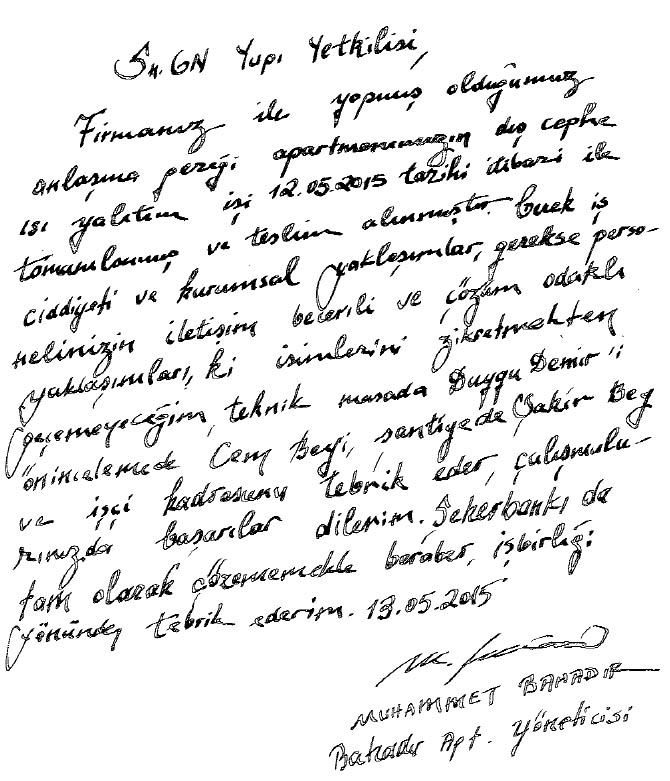 Sn. GN Yapı Yetkilisi,
Firmanız ile yapmış olduğumuz
anlaşma gereği apartmanımızın dış cephe
ısı yalıtım işi 12.05.2015 tarihi itibari ile
tamamlanmış ve teslim alınmıştır. Gerek iş
ciddiyeti ve kurumsal yaklaşımlar, gerekse perso-
nelinizin iletişim becerili ve çözüm odaklı
yaklaşımları, ki isimlerini zikretmekten
geçemeyeceğim, teknik masada Duygu Demir'i
önincelemede Cem Beyi, şantiyede Şakir Bey
ve işçi kadrosunu tebrik eder, çalışmala-
rınızda başarılar dilerim. Şekerbankı da
tam olarak çözememekle beraber, işbirliği
yönünden tebrik ederim. 13.05.2015
MUHAMMET BAHADIR
Bahadır Apt. Yöneticisi